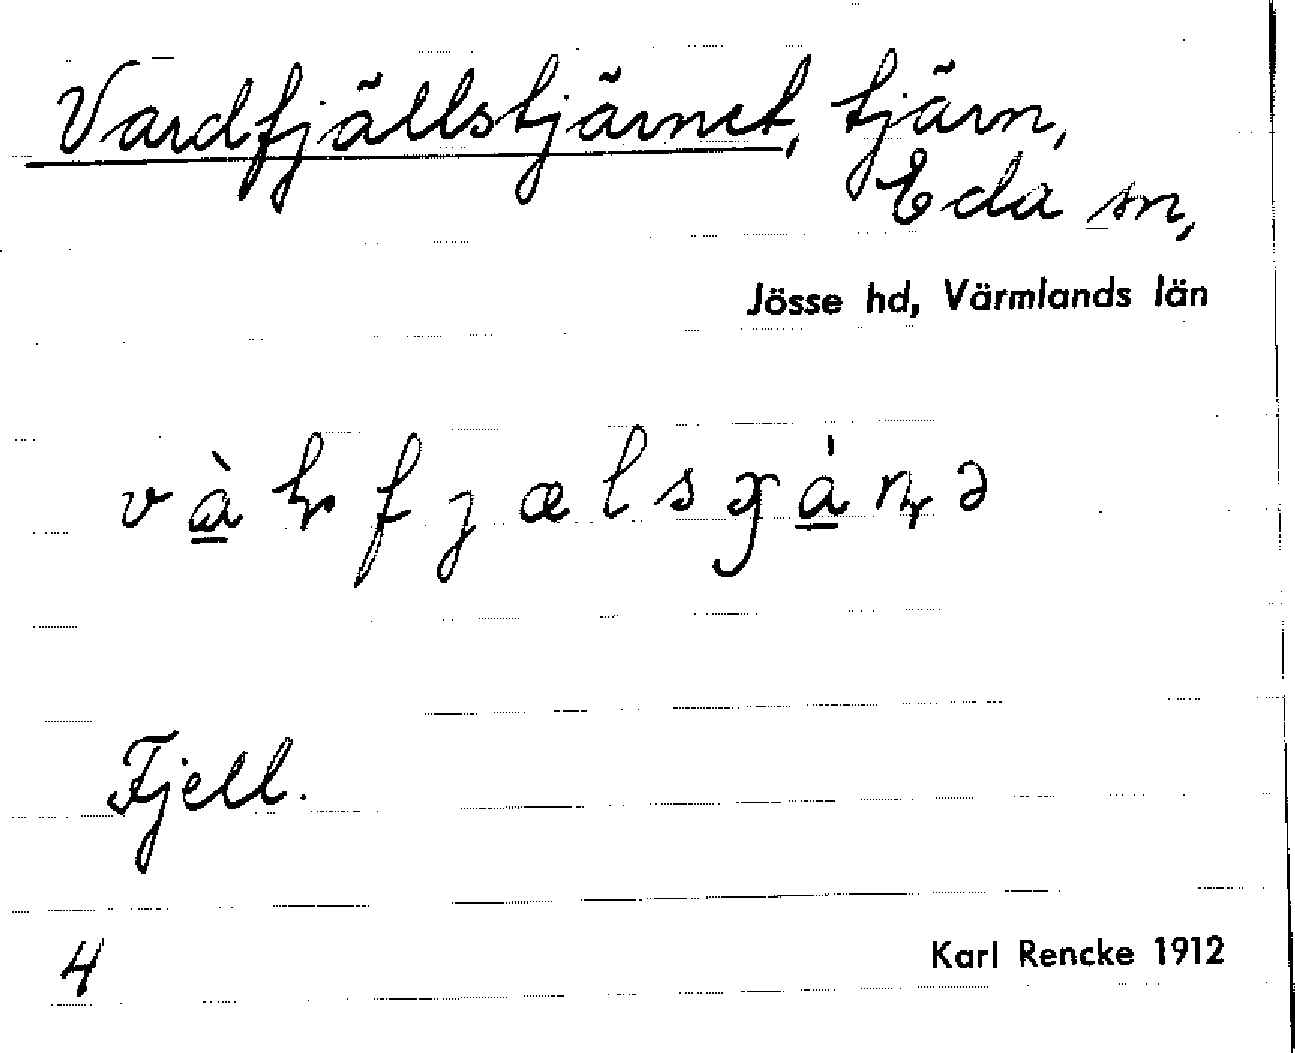 Vardfjällstjärnet, tjärn,
Eda sn,
Jösse hd, Värmlands län
Fjell.
4
Karl Rencke 1912